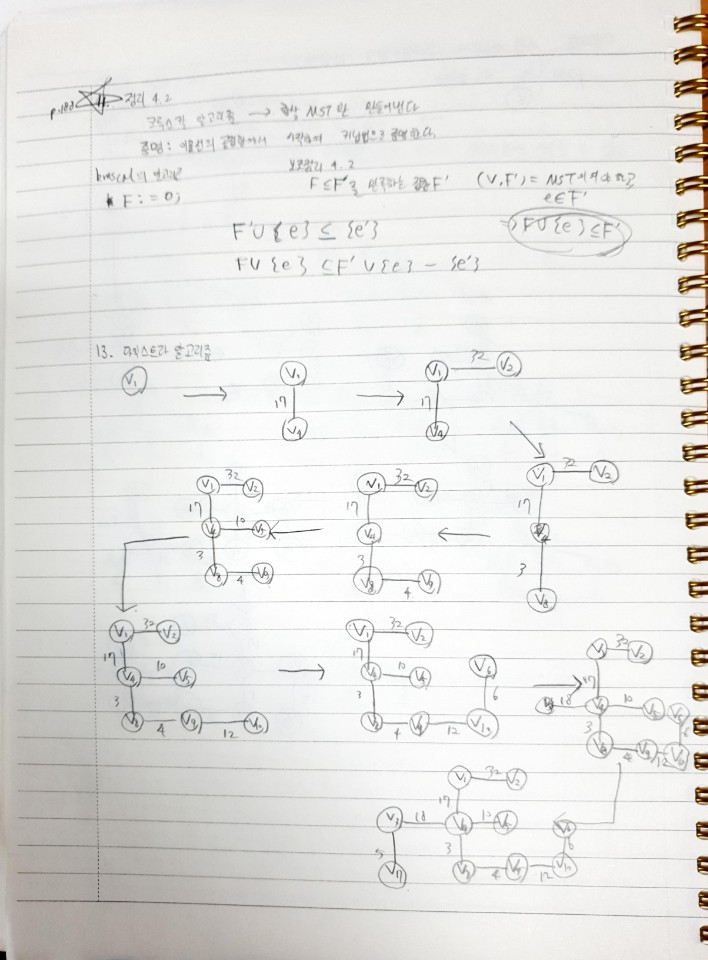 p.180 11. 정리 4.2
크루스칼 알고리즘 → 항상 MST만 만들어낸다
증명: 공집합에서 시작하여 귀납법으로 증명한다.
kruscal의 알고리즘 보조정리 4.2
F := 0; F⊆F'를 만족하는 집합F' (V,F') = MST
e∈F'
F'∪{e} ⊆ {e'} ⇒ F∪{e}⊆F'
F∪{e} ⊆ F'∪{e} - {e'}
13. 다익스트라 알고리즘
V1 → V1 17 V4 → V1 32 V2 17 V4
V1 32 V2 17 V4 10 V5 3 V8 4 V9
V1 32 V2 17 V4 3 V8 4 V9
V1 32 V2 17 V4 3 V8
V1 32 V2 17 V4 10 V5 3 V8 4 V9 12 V10
V1 32 V2 17 V4 10 V5 3 V8 4 V9 12 V10 6 V6
V1 32 V2 17 18 V4 10 V5 3 V8 4 V9 12 V10 6 V6
V1 32 V2 17 V3 18 V4 10 V5 5 V7 3 V8 4 V9 12 V10 6 V6